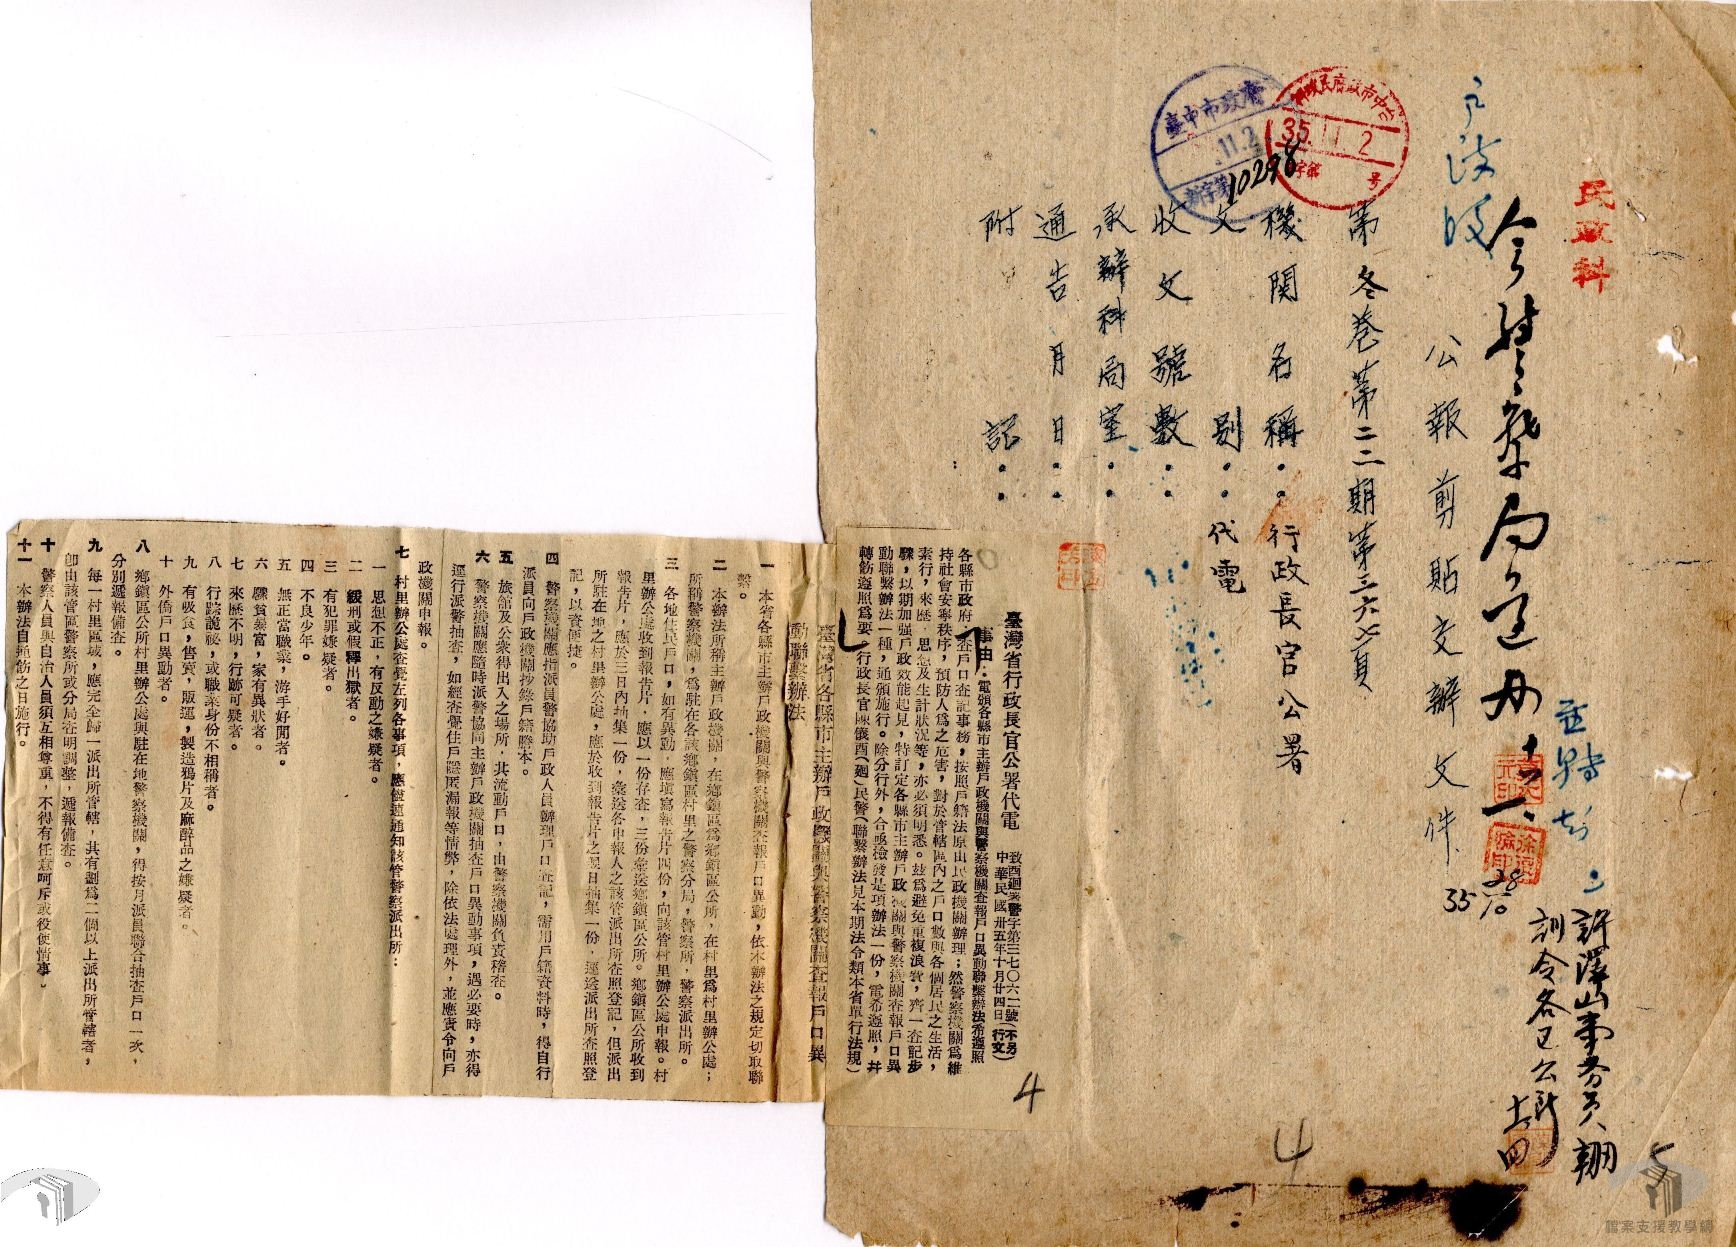 民政科
戶政股
公報剪貼交辦文件
35 28/10
訓令各區公所
第冬卷第二二期第三六七頁
機關名稱：行政長官公署
文別：代電
收文號數：
承辦科局室：
通告月日：
附記：
35.11.2
臺中市政府
11.2
10298
臺灣省行政長官公署代電
中華民國卅五年十月廿四日
事由：電頒各縣市主辦戶政機關與警察機關查報戶口異動聯繫辦法希遵照
各縣市政府：查戶口查記事務，按照戶籍法原由民政機關辦理；然警察機關為維
持社會安寧秩序，預防人為之危害，對於管轄區內之戶口數與各個居民之生活，
素行，來歷，思想及生計狀況等，亦必須明悉。茲為避免重複浪費，齊一查記步
驟，以期加强戶政效能起見，特訂定各縣市主辦戶政機關與警察機關查報戶口異
動聯繫辦法一種，通頒施行。除分行外，合亟檢發是項辦法一份，電希遵照，幷
轉飭遵照為要。行政長官陳儀酉（廻）民警（聯繫辦法見本期法令類本省單行法規）
臺灣省各縣市主辦戶政機關與警察機關查報戶口異
動聯繫辦法
一　本省各縣市主辦戶政機關與警察機關查報戶口異動，依本辦法之規定切取聯
繫。
二　本辦法所稱主辦戶政機關，在鄉鎮區為鄉鎮區公所，在村里為村里辦公處；
所稱警察機關，為駐在各該鄉鎮區村里之警察分局，警察所，警察派出所。
三　各地住民戶口，如有異動，應填寫報告片四份，向該管村里辦公處申報。村
里辦公處收到報告片，應以一份存查，三份彙送鄉鎮區公所。鄉鎮區公所收到
報告片，應於三日內抽集一份，彙送各申報人之該管派出所查照登記，但派出
所駐在地之村里辦公處，應於收到報告片之翌日抽集一份，逕送派出所查照登
記，以資便捷。
四　警察機關應指派員警協助戶政人員辦理戶口查記，需用戶籍資料時，得自行
派員向戶政機關，抄錄戶籍謄本。
五　旅館及公衆得出入之場所，其流動戶口，由警察機關負責稽查。
六　警察機關應隨時派警協同主辦戶政機關抽查戶口異動事項，遇必要時，亦得
逕行派警抽查，如經查覺住戶隱匿漏報等情弊，除依法處理外，並應責令向戶
政機關申報。
七　村里辦公處查覺左列各事項，應儘速通知該管警察派出所：
一　思想不正，有反動之嫌疑者。
二　緩刑或假釋出獄者。
三　有犯罪嫌疑者。
四　不良少年。
五　無正當職業，游手好閒者。
六　驟貧暴富，家有異狀者。
七　來歷不明，行跡可疑者。
八　行踪詭祕，或職業身份不相稱者。
九　有吸食，售賣，販運，製造鴉片及麻醉品之嫌疑者。
十　外僑戶口異動者。
八　鄉鎮區公所村里辦公處與駐在地警察機關，得按月派員聯合抽查戶口一次，
分別遞報備查。
九　每一村里區域，應完全歸一派出所管轄，其有劃為二個以上派出所管轄者，
卽由該管區警察所或分局查明調整，遞報備查。
十　警察人員與自治人員須互相尊重，不得有任意呵斥或役使情事。
十一　本辦法自通飭之日施行。
4
4
5
檔案支援教學網